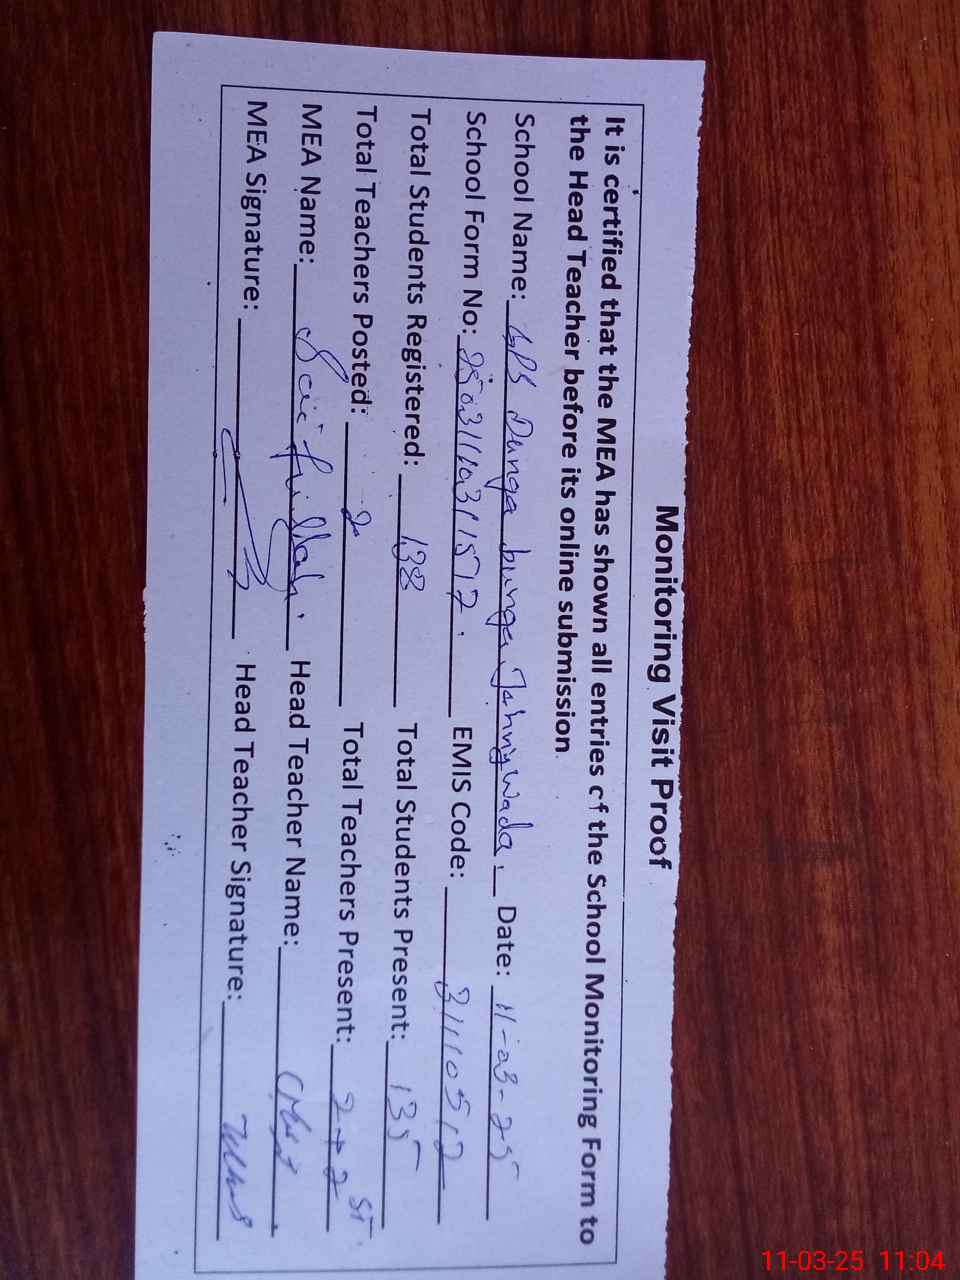 Monitoring Visit Proof
It is certified that the MEA has shown all entries of the School Monitoring Form to
the Head Teacher before its online submission
School Name: GPS Dunga bunga, Jahnig wada, Date: 11-03-25
School Form No: EMIS Code: 31110512
Total Students Registered: 138 Total Students Present: 135
Total Teachers Posted: 2 Total Teachers Present: 2+2 ST
MEA Name: Saif ullah Head Teacher Name:
MEA Signature: Head Teacher Signature:
11-03-25 11:04